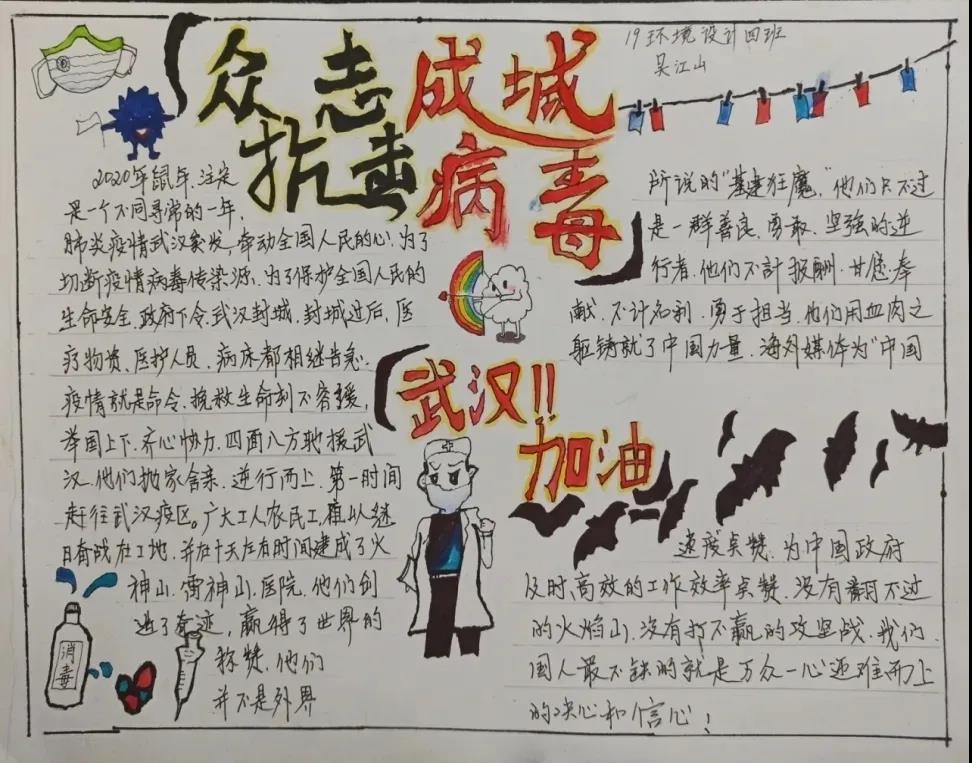 众志成城
抗击病毒
19环境设计四班
吴江山
2020年鼠年,注定
是一个不同寻常的一年,
肺炎疫情武汉突发,牵动全国人民的心!为了
切断疫情病毒传染源,为了保护全国人民的
生命安全,政府下令,武汉封城,封城过后,医
疗物资、医护人员、病床都相继告急.
疫情就是命令,挽救生命刻不容缓,
举国上下,齐心协力,四面八方驰援武
汉,他们抛家舍亲,逆行而上,第一时间
赶往武汉疫区。广大工人,农民工,夜以继
日奋战在工地,并在十天左右时间建成了火
神山、雷神山,医院,他们创
造了奇迹,赢得了世界的
称赞,他们
并不是外界
所说的"基建狂魔,"他们只不过
是一群善良、勇敢、坚强的逆
行者,他们不計报酬,甘愿奉
献,不计名利,勇于担当,他们用血肉之
躯铸就了中国力量,海外媒体为"中国
速度点赞,为中国政府
及时、高效的工作效率点赞,没有翻不过
的火焰山,没有打不赢的攻坚战,我们
国人最不缺的就是万众一心迎难而上
的决心和信心!
武汉!!
加油
消毒